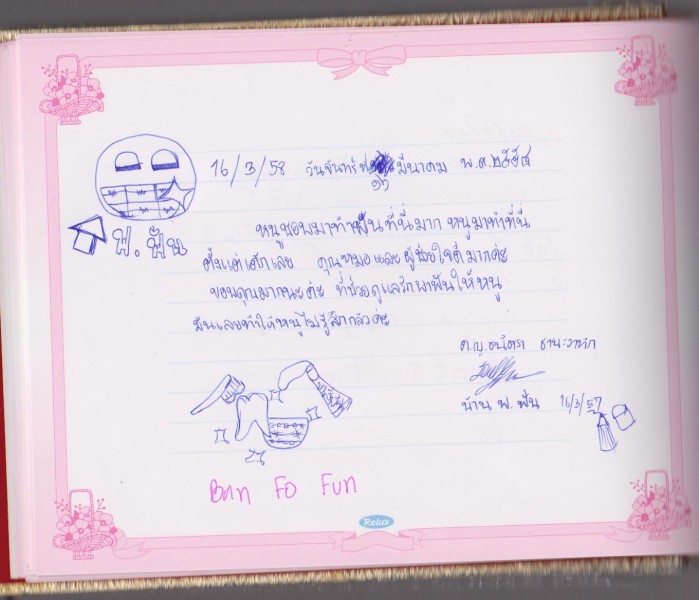 16/3/58 วันจันทร์ที่ ๑๖ มีนาคม พ.ศ.๒๕๕๘
ฟ.ฟัน
หนูชอบมาทำฟันที่นี่มาก หนูมาทำที่นี่
ตั้งแต่เด็กเลย คุณหมอและผู้ช่วยใจดีมากค่ะ
ขอบคุณมากนะคะ ที่ช่วยดูแลรักษาฟันให้หนู
มันเลยทำให้หนูไม่รู้สึกกลัวค่ะ
ด.ญ.
บ้าน ฟ.ฟัน 16/3/57
Ban Fo Fun
Relux